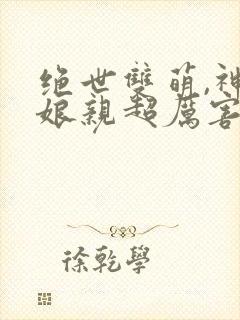 绝世雙萌,神
娘親超厲害
徐乾學